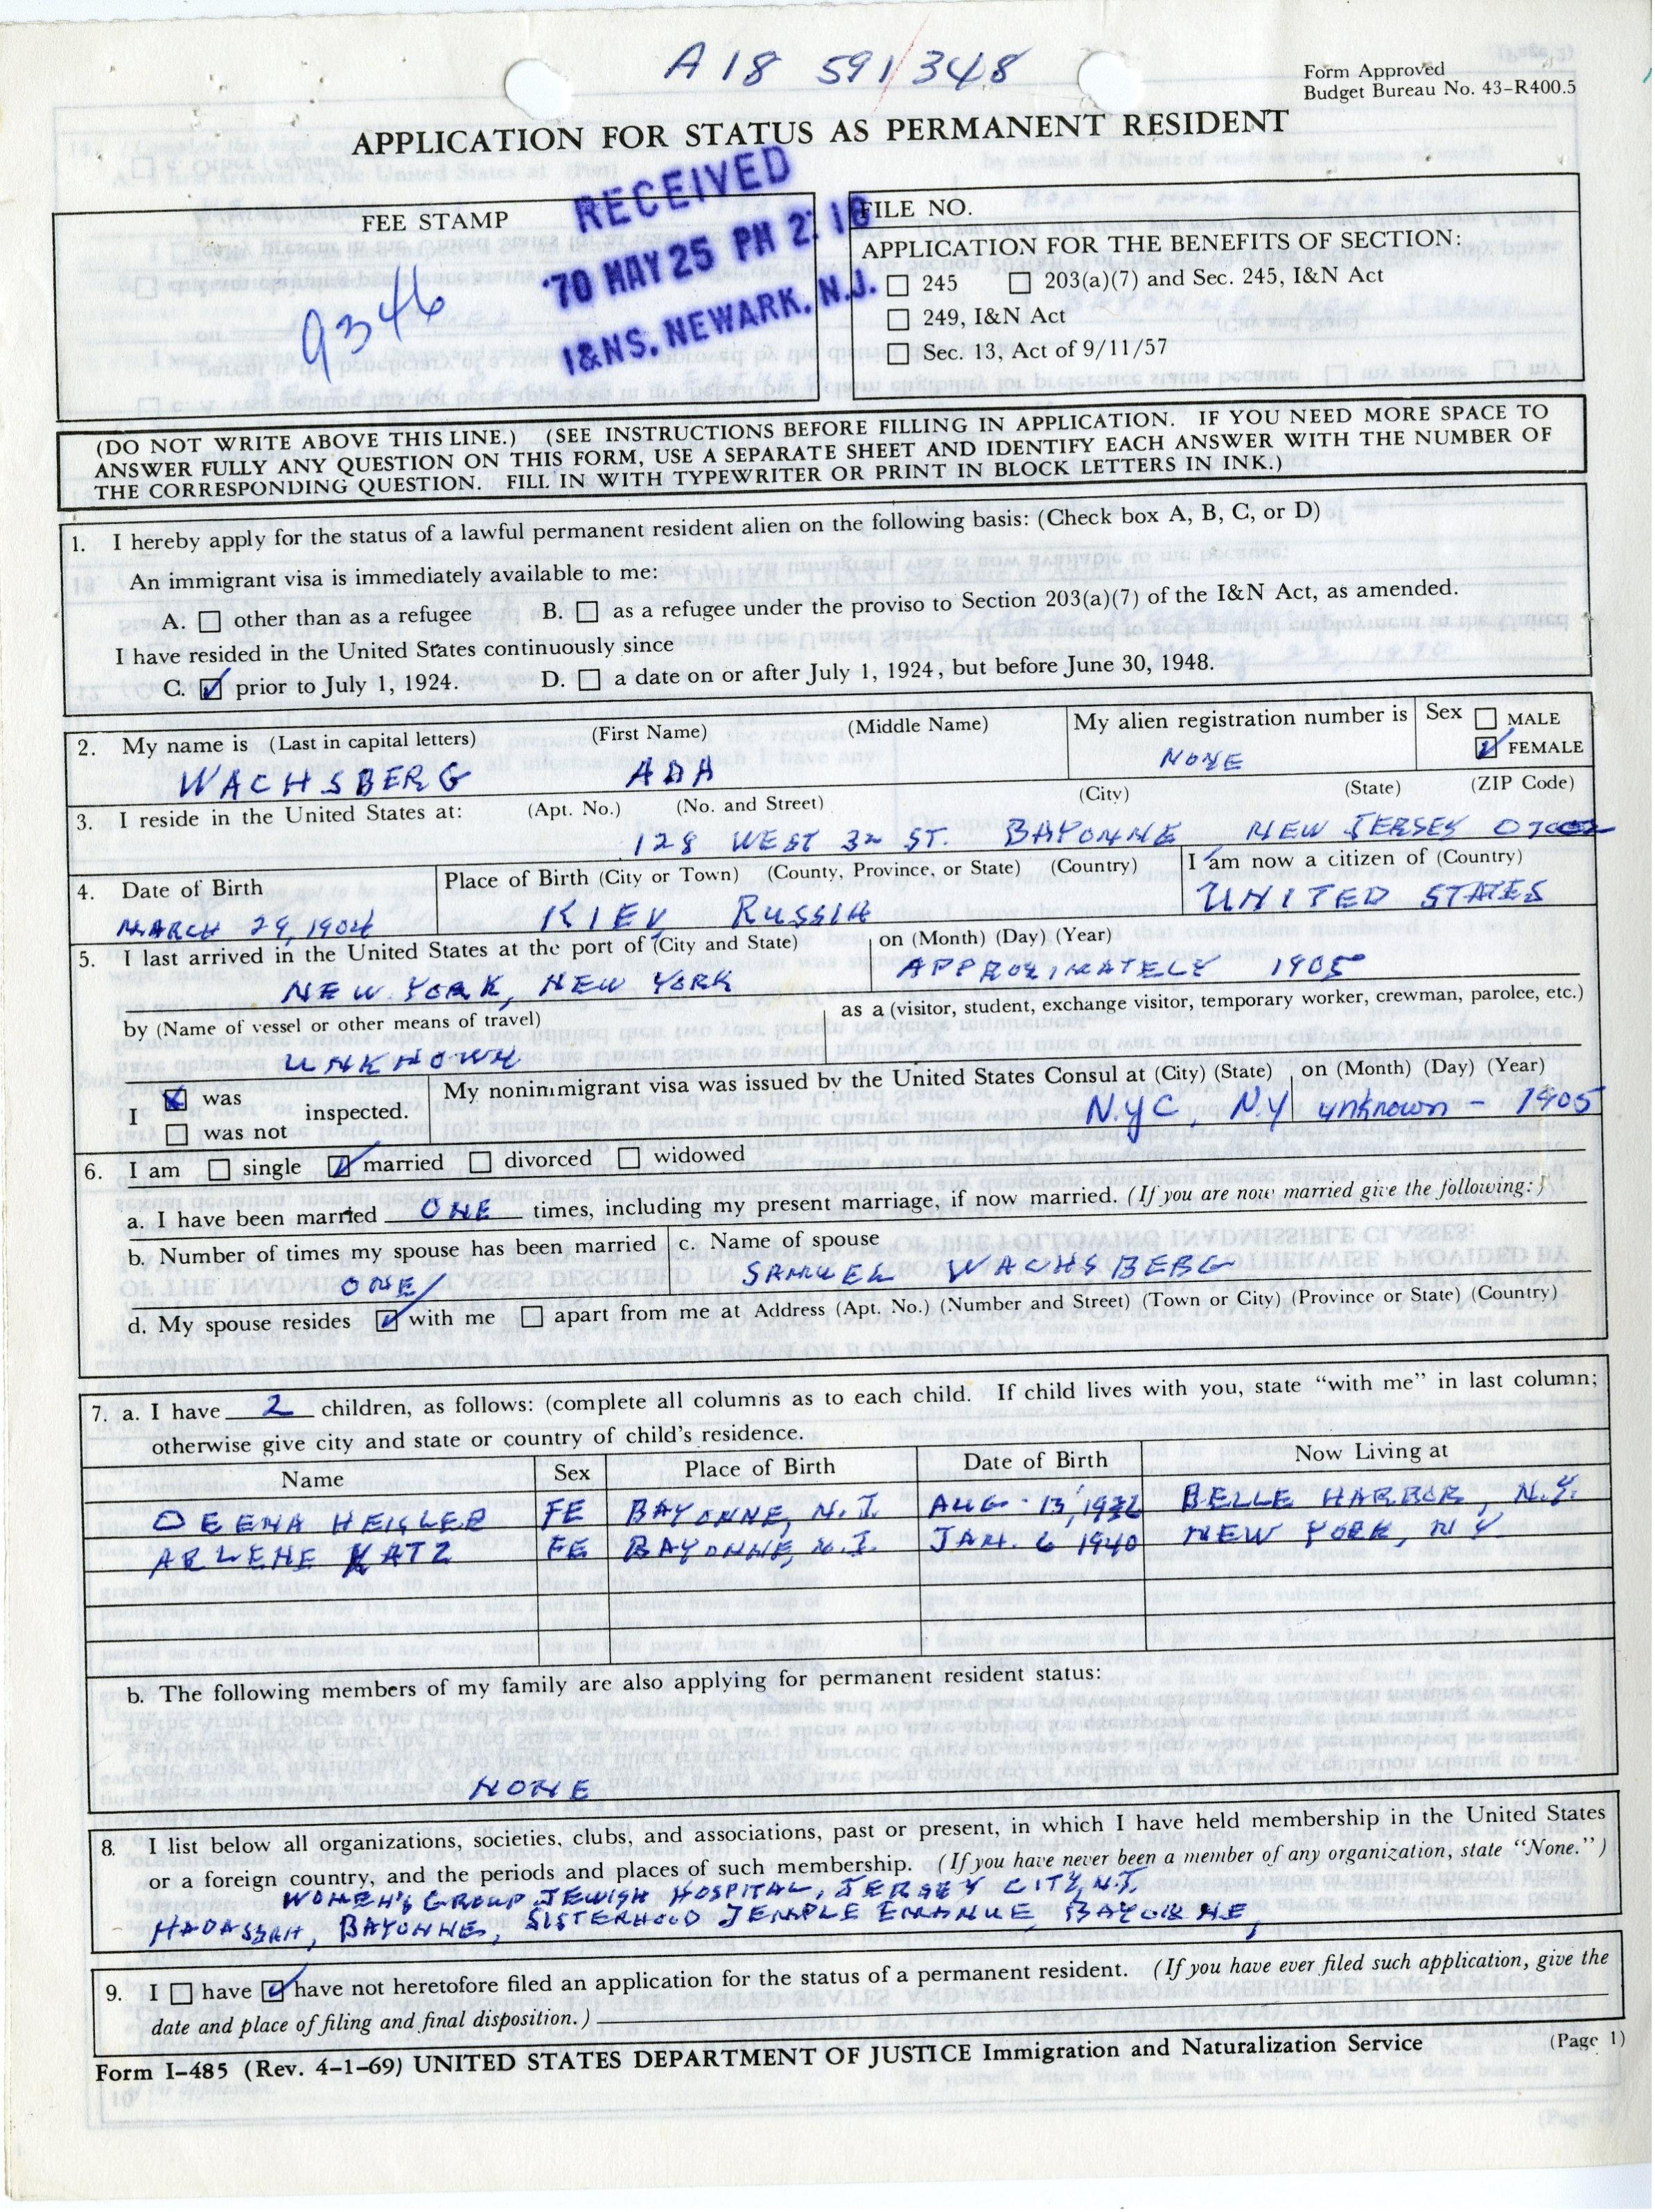 A18 591/348
Form Approved
Budget Bureau No. 43-R400.5
APPLICATION FOR STATUS AS PERMANENT RESIDENT
FEE STAMP
9346
RECEIVED
'70 MAY 25 PM 2:18
I&NS. NEWARK, N.J.
FILE NO.
APPLICATION FOR THE BENEFITS OF SECTION:
☐ 245 ☐ 203(a)(7) and Sec. 245, I&N Act
☐ 249, I&N Act
☐ Sec. 13, Act of 9/11/57
(DO NOT WRITE ABOVE THIS LINE.) (SEE INSTRUCTIONS BEFORE FILLING IN APPLICATION. IF YOU NEED MORE SPACE TO
ANSWER FULLY ANY QUESTION ON THIS FORM, USE A SEPARATE SHEET AND IDENTIFY EACH ANSWER WITH THE NUMBER OF
THE CORRESPONDING QUESTION. FILL IN WITH TYPEWRITER OR PRINT IN BLOCK LETTERS IN INK.)
1. I hereby apply for the status of a lawful permanent resident alien on the following basis: (Check box A, B, C, or D)
An immigrant visa is immediately available to me:
A. ☐ other than as a refugee B. ☐ as a refugee under the proviso to Section 203(a)(7) of the I&N Act, as amended.
I have resided in the United States continuously since
C. ☑ prior to July 1, 1924. D. ☐ a date on or after July 1, 1924, but before June 30, 1948.
2. My name is (Last in capital letters) (First Name) (Middle Name) My alien registration number is Sex ☐ MALE
WACHSBERG ADA NONE ☑ FEMALE
3. I reside in the United States at: (Apt. No.) (No. and Street) (City) (State) (ZIP Code)
128 WEST 32 ST. BAYONNE NEW JERSEY 07002
4. Date of Birth Place of Birth (City or Town) (County, Province, or State) (Country) I am now a citizen of (Country)
MARCH 29, 1904 KIEV RUSSIA UNITED STATES
5. I last arrived in the United States at the port of (City and State) on (Month) (Day) (Year)
NEW YORK, NEW YORK APPROXIMATELY 1905
by (Name of vessel or other means of travel) as a (visitor, student, exchange visitor, temporary worker, crewman, parolee, etc.)
UNKNOWN
I ☒ was inspected. My nonimmigrant visa was issued by the United States Consul at (City) (State) on (Month) (Day) (Year)
☐ was not N.Y.C, N.Y unknown - 1905
6. I am ☐ single ☑ married ☐ divorced ☐ widowed
a. I have been married ONE times, including my present marriage, if now married. (If you are now married give the following:)
b. Number of times my spouse has been married c. Name of spouse
ONE SAMUEL WACHSBERG
d. My spouse resides ☑ with me ☐ apart from me at Address (Apt. No.) (Number and Street) (Town or City) (Province or State) (Country)
7. a. I have 2 children, as follows: (complete all columns as to each child. If child lives with you, state "with me" in last column;
otherwise give city and state or country of child's residence.
Name Sex Place of Birth Date of Birth Now Living at
DEENA HEISLER FE BAYONNE, N.J. AUG. 13, 1932 BELLE HARBOR, N.Y.
ARLENE KATZ FE BAYONNE, N.J. JAN. 6 1940 NEW YORK, NY
b. The following members of my family are also applying for permanent resident status:
NONE
8. I list below all organizations, societies, clubs, and associations, past or present, in which I have held membership in the United States
or a foreign country, and the periods and places of such membership. (If you have never been a member of any organization, state "None.")
WOMEN'S GROUP JEWISH HOSPITAL, JERSEY CITY, N.J.
HADASSAH, BAYONNE, SISTERHOOD TEMPLE EMANUE, BAYONNE,
9. I ☐ have ☑ have not heretofore filed an application for the status of a permanent resident. (If you have ever filed such application, give the
date and place of filing and final disposition.)
Form I-485 (Rev. 4-1-69) UNITED STATES DEPARTMENT OF JUSTICE Immigration and Naturalization Service (Page 1)